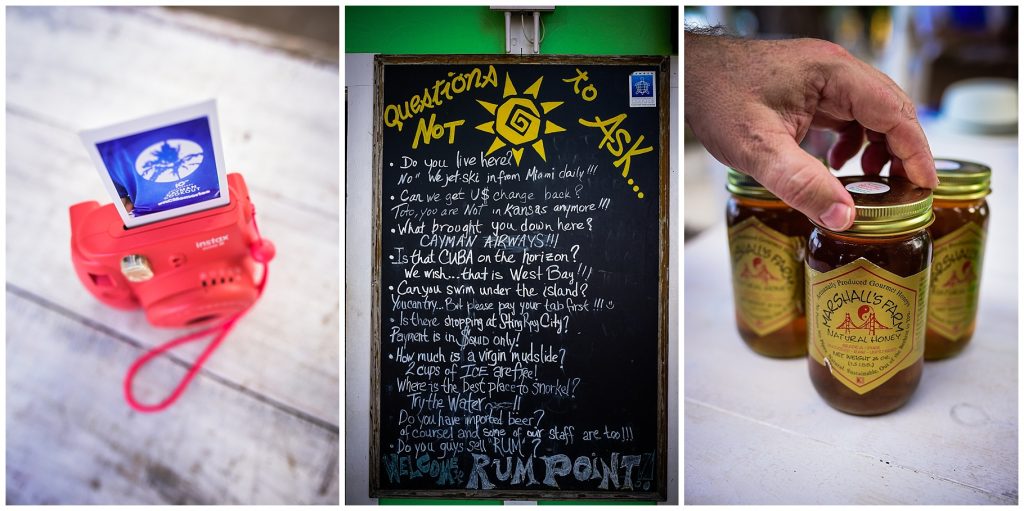 CAYMAN COOKOUT
instax
Questions to
Not ASK...
• Do you live here?
No" We jet-ski in from Miami daily!!!
• Can we get U$ change back?
Toto, you are Not in Kansas anymore!!!
• What brought you down here?
CAYMAN AIRWAYS!!!
• Is that CUBA on the horizon?
We wish... that is West Bay!!!
• Can you swim under the island?
You can try.. But please pay your tab first!!!
• Is there shopping at Sting Ray City?
Payment is in $quid only!
• How much is a virgin mudslide?
2 cups of ICE are free!
Where is the best place to snorkel?
Try the Water !!
Do you have imported beer?
of course! and some of our staff are too!!!
• Do you guys sell "RUM"?
WELCOME to RUM POINT!!
Artisanally Produced Gourmet Honey
MARSHALL'S FARM
NATURAL HONEY
NET WEIGHT 24 OZ.